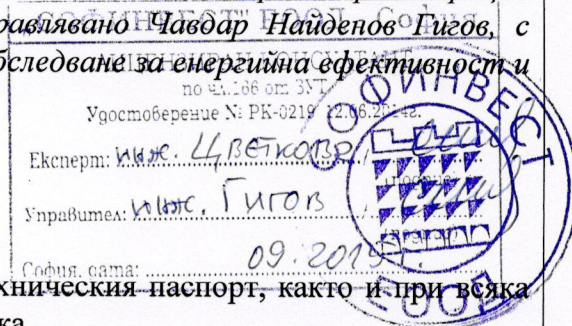 СОФИНВЕСТ ЕООД, София
равлявано Чавдар Найденов Гигов, с
бследване за енергийна ефективност и
по чл.166 от ЗУТ
Удостоверение № РК-0219 12.06.2014г.
Експерт: инж. Цветкова
Управител: инж. Гигов
София, дата: 09.2019г.
СОФИНВЕСТ
ЕООД
хническия паспорт, както и при всяка
ка